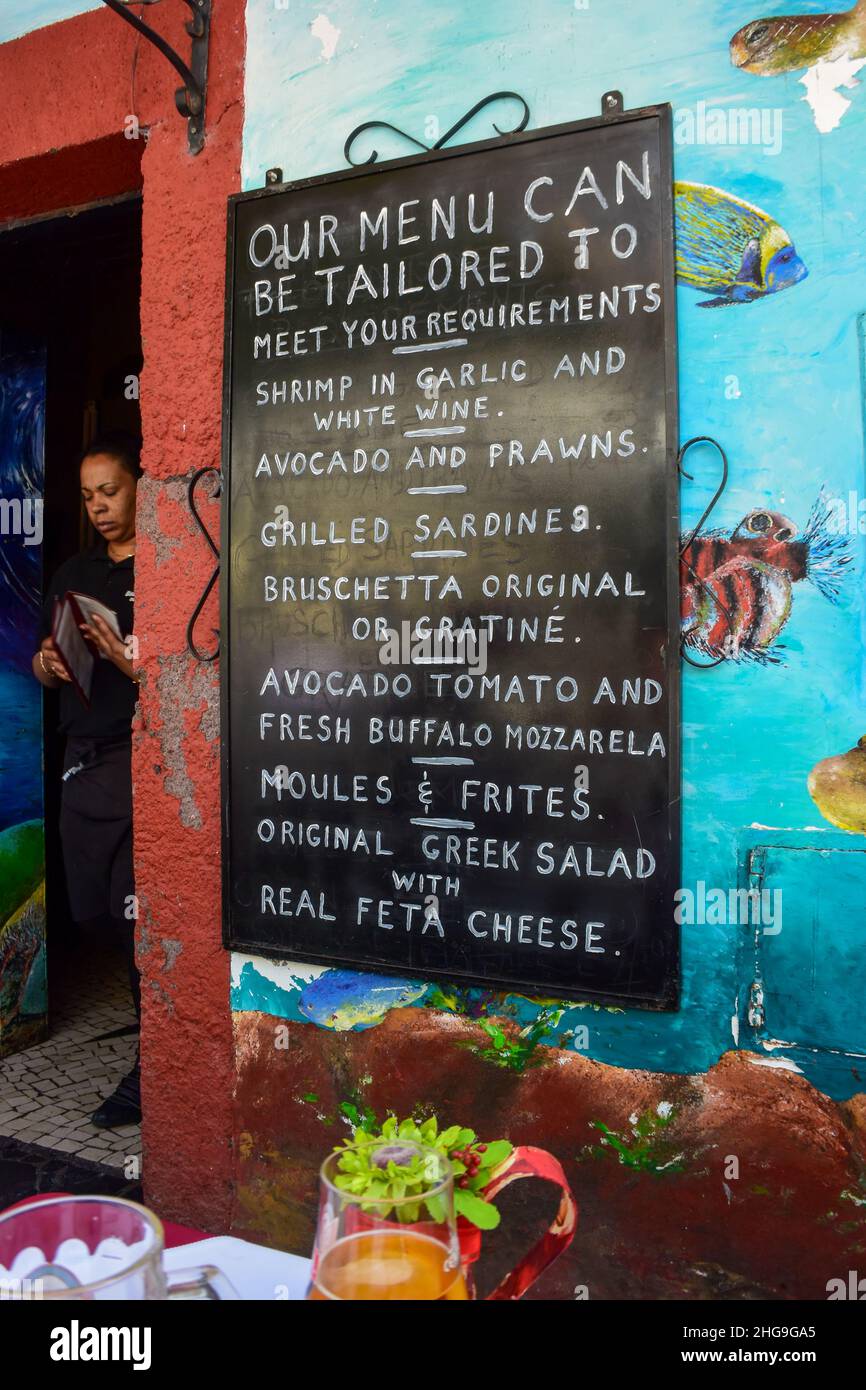 OUR MENU CAN
BE TAILORED TO
MEET YOUR REQUIREMENTS
SHRIMP IN GARLIC AND
WHITE WINE.
AVOCADO AND PRAWNS.
GRILLED SARDINES.
BRUSCHETTA ORIGINAL
OR GRATINÉ.
AVOCADO TOMATO AND
FRESH BUFFALO MOZZARELA
MOULES & FRITES.
ORIGINAL GREEK SALAD
WITH
REAL FETA CHEESE.
alamy
Image ID: 2HG9GA5
www.alamy.com